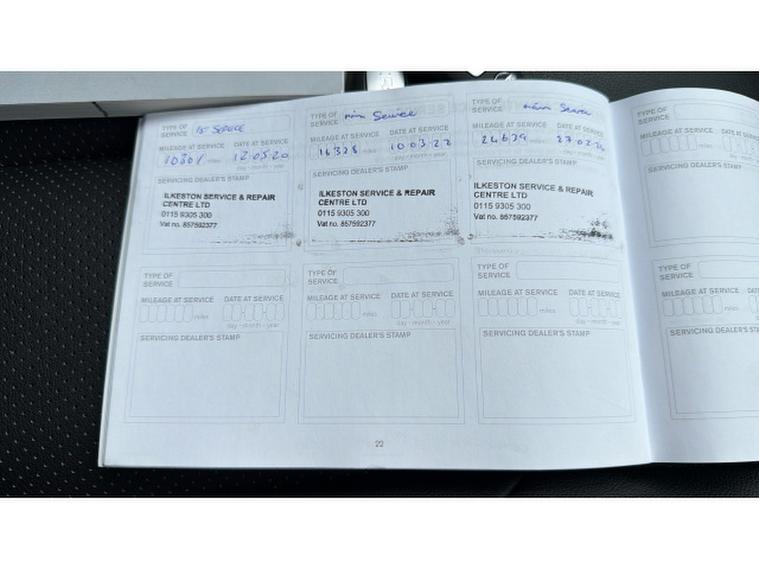 TYPE OF SERVICE 1st SERVICE
MILEAGE AT SERVICE DATE AT SERVICE
10801 miles 12 05 20
day - month - year
SERVICING DEALER'S STAMP
ILKESTON SERVICE & REPAIR
CENTRE LTD
0115 9305 300
Vat no. 857592377
TYPE OF SERVICE Service
MILEAGE AT SERVICE DATE AT SERVICE
16328 miles 10 03 22
day - month - year
SERVICING DEALER'S STAMP
ILKESTON SERVICE & REPAIR
CENTRE LTD
0115 9305 300
Vat no. 857592377
TYPE OF SERVICE main Service
MILEAGE AT SERVICE DATE AT SERVICE
24639 miles 27 02
day - month - year
SERVICING DEALER'S STAMP
ILKESTON SERVICE & REPAIR
CENTRE LTD
0115 9305 300
Vat no. 857592377
TYPE OF SERVICE
MILEAGE AT SERVICE
miles
SERVICING DEALER'S STAMP
TYPE OF SERVICE
MILEAGE AT SERVICE DATE AT SERVICE
miles day - month - year
SERVICING DEALER'S STAMP
TYPE OF SERVICE
MILEAGE AT SERVICE DATE AT SERVICE
miles day - month - year
SERVICING DEALER'S STAMP
TYPE OF SERVICE
MILEAGE AT SERVICE DATE AT SERVICE
miles day - month - year
SERVICING DEALER'S STAMP
TYPE OF SERVICE
MILEAGE AT SERVICE
miles
SERVICING DEALER'S
22